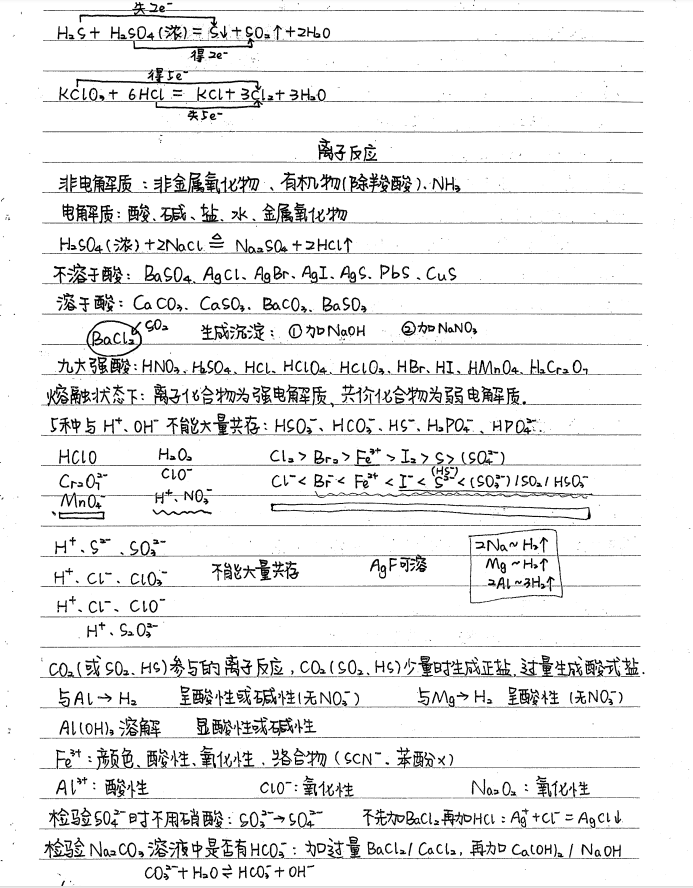 失2e⁻
H₂S + H₂SO₄(浓) = S↓ + SO₂↑ + 2H₂O
得2e⁻
得5e⁻
KClO₃ + 6HCl = KCl + 3Cl₂ + 3H₂O
失5e⁻
离子反应
非电解质：非金属氧化物、有机物(除羧酸)、NH₃
电解质：酸、碱、盐、水、金属氧化物
H₂SO₄(浓) + 2NaCl ≜ Na₂SO₄ + 2HCl↑
不溶于酸：BaSO₄、AgCl、AgBr、AgI、AgS、PbS、CuS
溶于酸：CaCO₃、CaSO₃、BaCO₃、BaSO₃
BaCl₂ SO₂ 生成沉淀：①加NaOH ②加NaNO₃
九大强酸：HNO₃、H₂SO₄、HCl、HClO₄、HClO₃、HBr、HI、HMnO₄、H₂Cr₂O₇
熔融状态下：离子化合物为强电解质，共价化合物为弱电解质。
5种与H⁺、OH⁻不能大量共存：HSO₃⁻、HCO₃⁻、HS⁻、H₂PO₄⁻、HPO₄²⁻.
HClO H₂O₂ Cl₂ > Br₂ > Fe³⁺ > I₂ > S > (SO₄²⁻)
Cr₂O₇²⁻ ClO⁻ Cl⁻ < Br⁻ < Fe²⁺ < I⁻ < S²⁻(HS⁻) < (SO₃²⁻)/SO₂/HSO₃⁻
MnO₄⁻ H⁺、NO₃⁻
H⁺、S²⁻、SO₃²⁻ 2Na~H₂↑
H⁺、Cl⁻、ClO₃⁻ 不能大量共存 AgF可溶 Mg~H₂↑
2Al~3H₂↑
H⁺、Cl⁻、ClO⁻
H⁺、S₂O₃²⁻
CO₂(或SO₂、HS)参与的离子反应，CO₂(SO₂、HS)少量时生成正盐，过量生成酸式盐.
与Al→H₂ 呈酸性或碱性(无NO₃⁻) 与Mg→H₂ 呈酸性(无NO₃⁻)
Al(OH)₃溶解 显酸性或碱性
Fe³⁺：颜色、酸性、氧化性、络合物(SCN⁻、苯酚×)
Al³⁺：酸性 ClO⁻：氧化性 Na₂O₂：氧化性
检验SO₄²⁻时不用硝酸：SO₃²⁻→SO₄²⁻ 不先加BaCl₂再加HCl：Ag⁺+Cl⁻=AgCl↓
检验Na₂CO₃溶液中是否有HCO₃⁻：加过量BaCl₂/CaCl₂，再加Ca(OH)₂/NaOH
CO₃²⁻+H₂O⇌HCO₃⁻+OH⁻